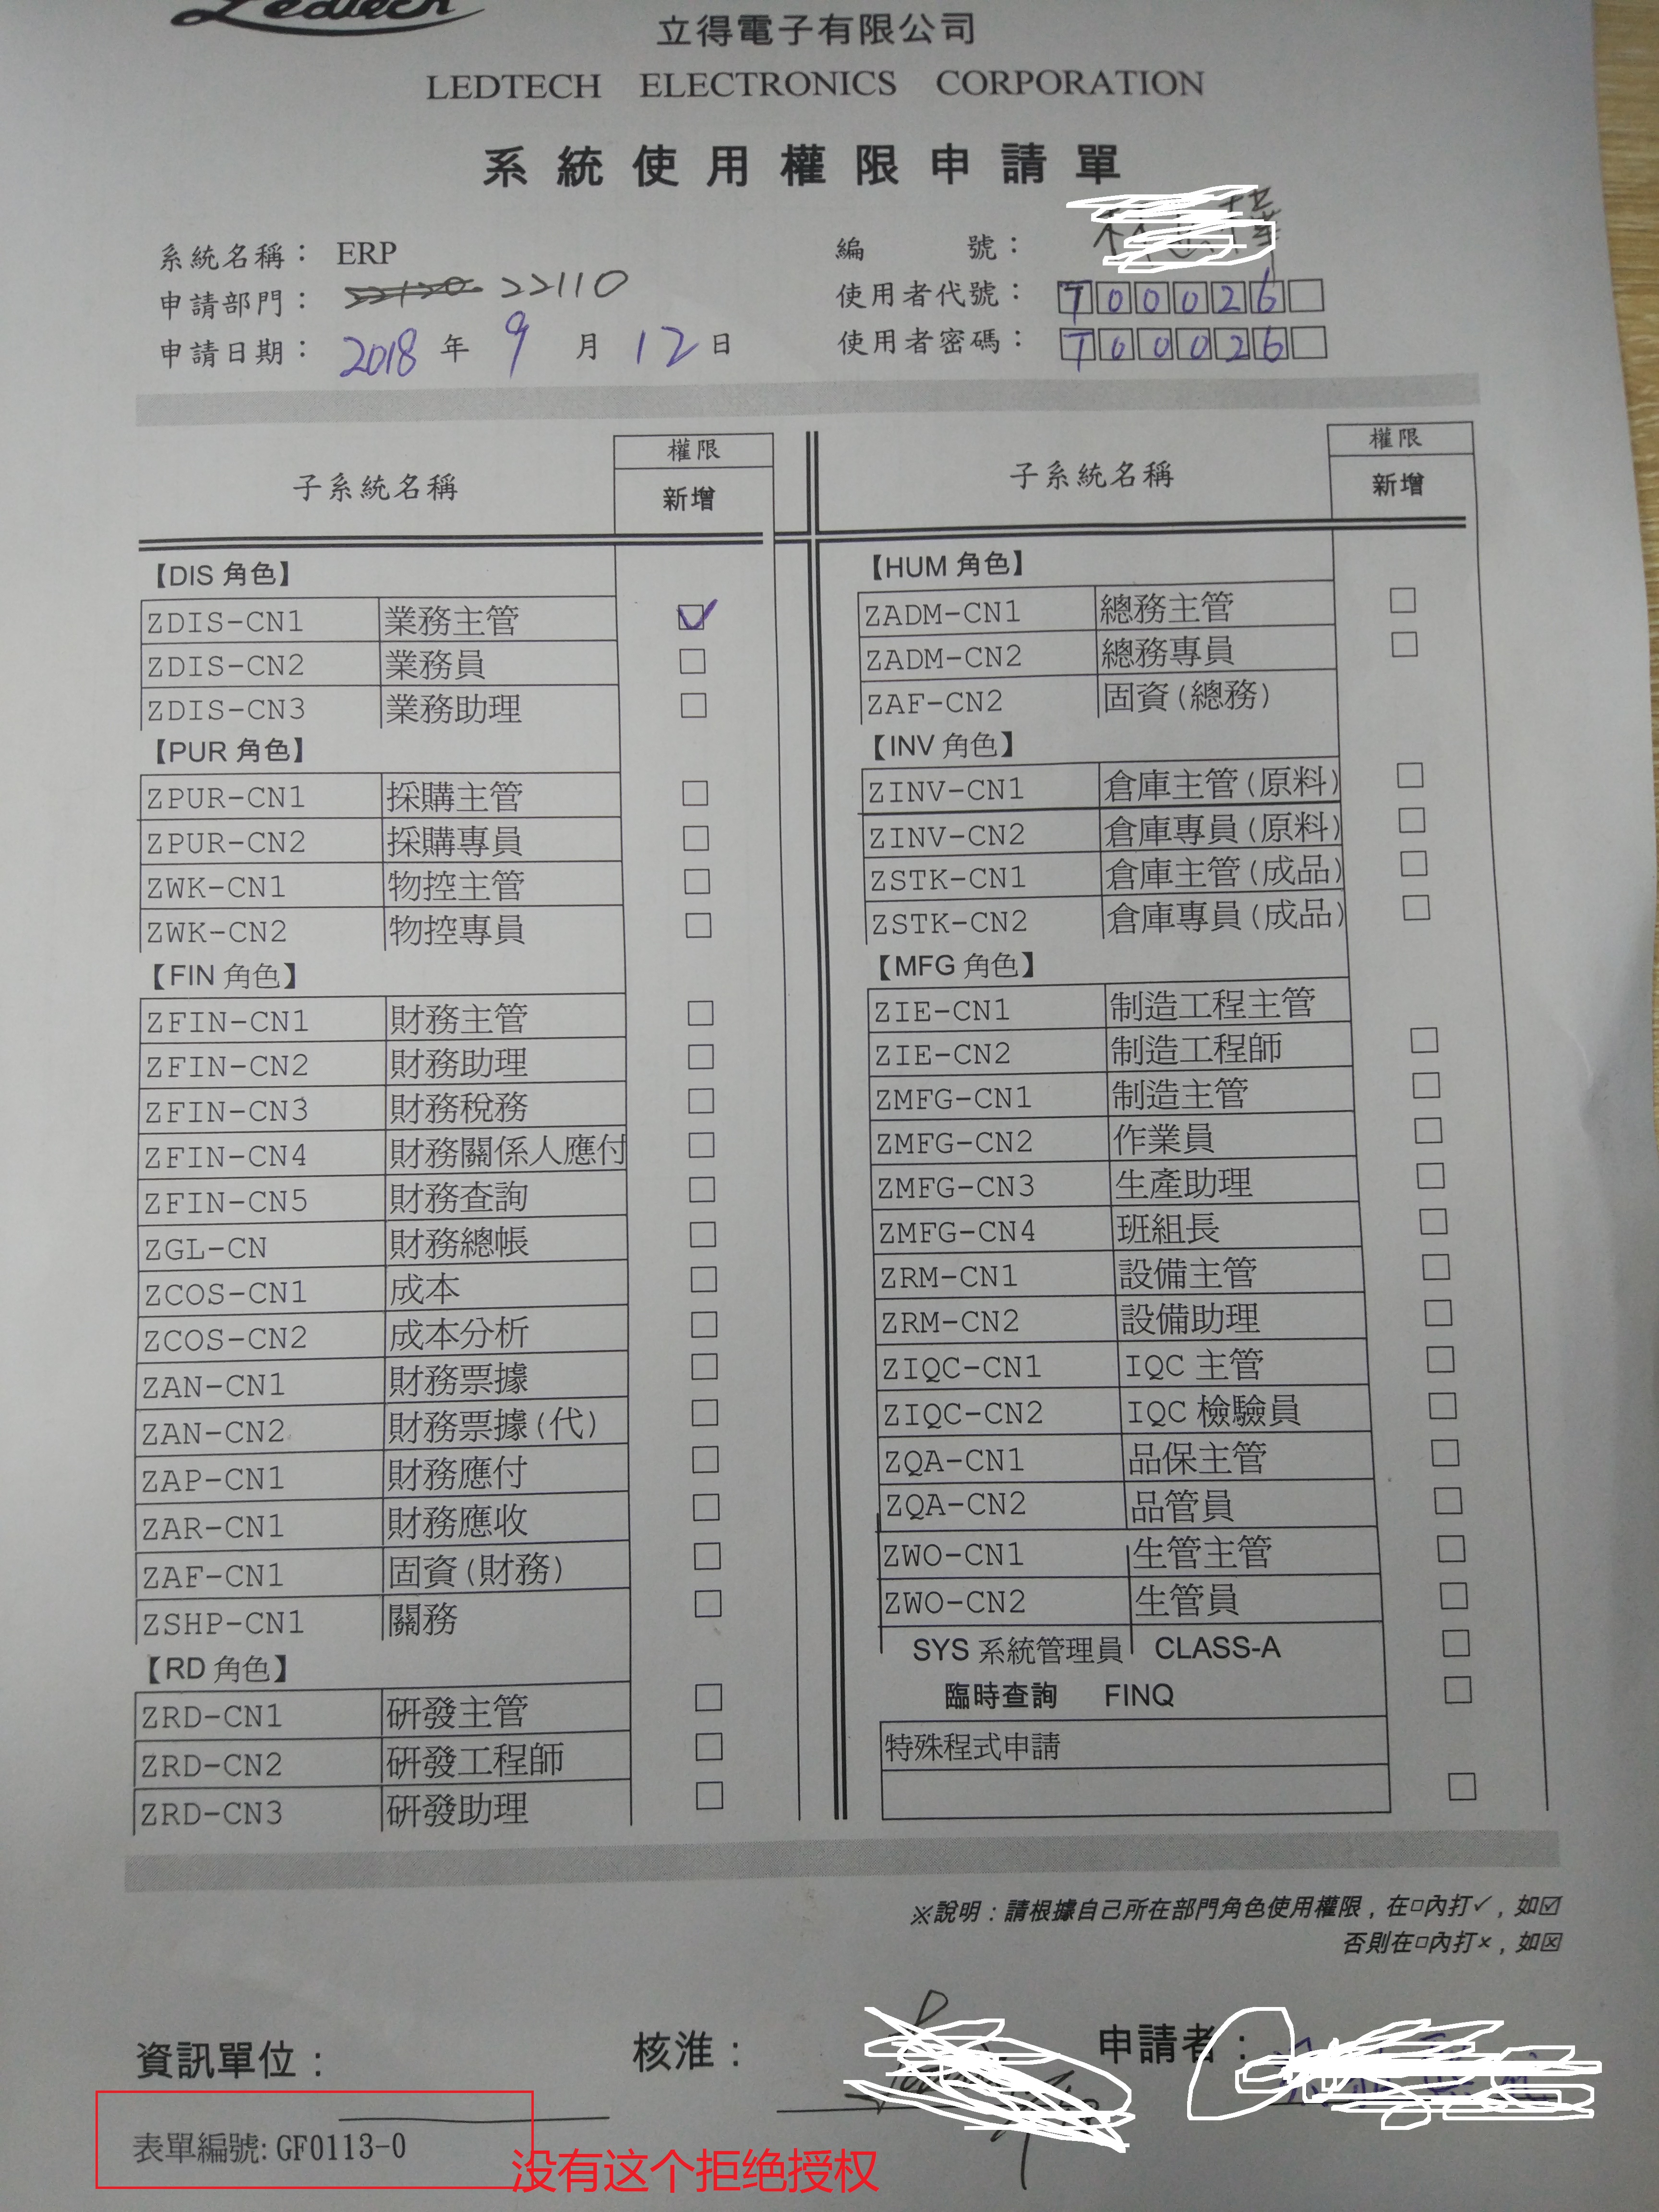 Ledtech
立得電子有限公司
LEDTECH ELECTRONICS CORPORATION
系統使用權限申請單
系統名稱： ERP
編 號：
申請部門： 22110
使用者代號： T00026
申請日期： 2018 年 9 月 12 日
使用者密碼： T00026
子系統名稱 權限
新增
【DIS 角色】
ZDIS-CN1 業務主管 ☑
ZDIS-CN2 業務員 □
ZDIS-CN3 業務助理 □
【PUR 角色】
ZPUR-CN1 採購主管 □
ZPUR-CN2 採購專員 □
ZWK-CN1 物控主管 □
ZWK-CN2 物控專員 □
【FIN 角色】
ZFIN-CN1 財務主管 □
ZFIN-CN2 財務助理 □
ZFIN-CN3 財務稅務 □
ZFIN-CN4 財務關係人應付 □
ZFIN-CN5 財務查詢 □
ZGL-CN 財務總帳 □
ZCOS-CN1 成本 □
ZCOS-CN2 成本分析 □
ZAN-CN1 財務票據 □
ZAN-CN2 財務票據(代) □
ZAP-CN1 財務應付 □
ZAR-CN1 財務應收 □
ZAF-CN1 固資(財務) □
ZSHP-CN1 關務 □
【RD 角色】
ZRD-CN1 研發主管 □
ZRD-CN2 研發工程師 □
ZRD-CN3 研發助理 □
子系統名稱 權限
新增
【HUM 角色】
ZADM-CN1 總務主管 □
ZADM-CN2 總務專員 □
ZAF-CN2 固資(總務)
【INV 角色】
ZINV-CN1 倉庫主管(原料) □
ZINV-CN2 倉庫專員(原料) □
ZSTK-CN1 倉庫主管(成品) □
ZSTK-CN2 倉庫專員(成品) □
【MFG 角色】
ZIE-CN1 制造工程主管
ZIE-CN2 制造工程師 □
ZMFG-CN1 制造主管 □
ZMFG-CN2 作業員 □
ZMFG-CN3 生產助理 □
ZMFG-CN4 班組長 □
ZRM-CN1 設備主管 □
ZRM-CN2 設備助理 □
ZIQC-CN1 IQC 主管 □
ZIQC-CN2 IQC 檢驗員 □
ZQA-CN1 品保主管 □
ZQA-CN2 品管員 □
ZWO-CN1 生管主管 □
ZWO-CN2 生管員 □
SYS 系統管理員 CLASS-A □
臨時查詢 FINQ □
特殊程式申請
□
※說明：請根據自己所在部門角色使用權限，在□內打✓，如☑
否則在□內打×，如☒
資訊單位： 核准： 申請者：
表單編號: GF0113-0
没有这个拒绝授权